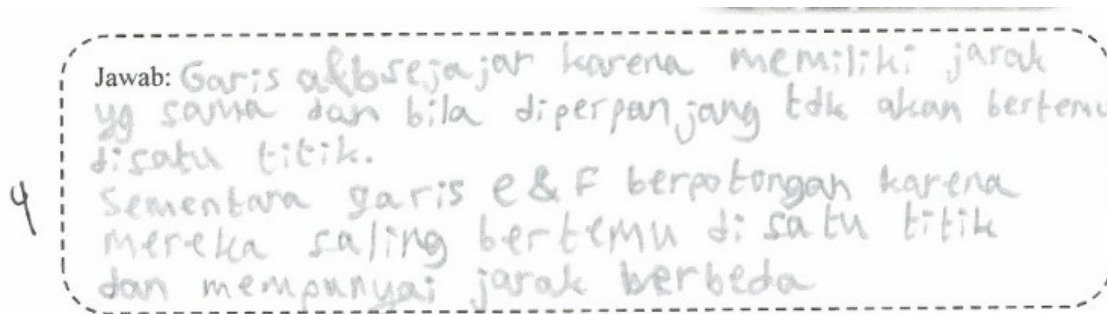 Jawab: Garis a&b sejajar karena memiliki jarak
yg sama dan bila diperpanjang tdk akan bertemu
disatu titik.
Sementara garis e & F berpotongan karena
4
mereka saling bertemu di satu titik
dan mempunyai jarak berbeda